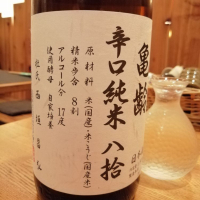 亀齢
辛口純米 八拾
原材料 米(国産)・米こうじ(国産米)
精米歩合 8割
アルコール分 17度
使用酵母 自家培養
杜氏 西垣昌弘